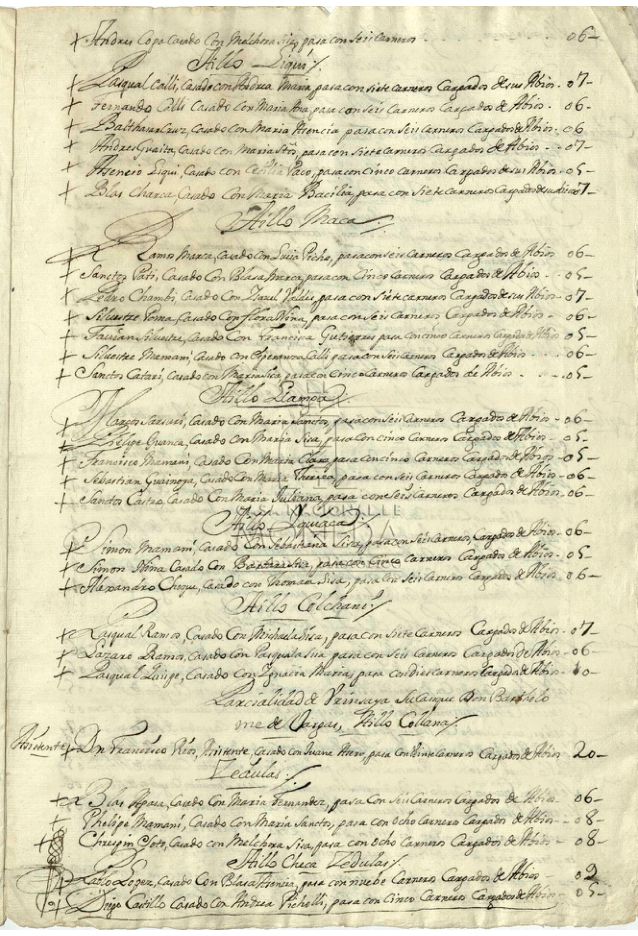 + Andres Copa Casado Con Melchora Sisa, pasa con seis carneros - 06-
Aillo Liqui/.
+ Pasqual Calli, Casado con Andrea Maria, pasa con siete carneros Cargados de sus Abios - 07-
+ Fernando Calli Casado Con Maria Ana, pasa con seis Carneros Cargados de Abios - 06-
+ Balthasar Cruz, Casado con Maria Asencia pasa con seis Carneros Cargados de Abios - 06
+ Andres Guaita, Casado con Maria, pasa con siete Carneros, Cargados de Abios - 07-
+ Asencio Liqui, Casado con Cecilia Paco, pasa con cinco Carneros, Cargados de sus Abios - 05-
+ Blas Charca Casado Con Maria Bacilia, pasa con siete Carneros Cargados de sus Abios 07-
Aillo Maca/.
+ Ramos Marca, Casado con Luisa Picho, pasa con seis Carneros Cargados de Abios 06-
+ Sanctos Pati, Casado Con Blasa Marca, pasa con Cinco Carneros Cargados de Abios - 05-
+ Pedro Chambi, Casado Con Valdes, pasa con siete carneros Cargados de sus Abios - 07-
+ Silvestre Poma, Casado con Flora Nina, pasa con seis Carneros Cargados de Abios - 06-
+ Favian Silvestre, Casado Con Francisca Gutierres pasa con cinco Carneros Cargados de Abios - 05-
+ Silvestre Mamani, Casado con Calli pasa con seis Carneros Cargados de Abios - 06-
+ Sanctos Catari, Casado con Maria Sisa, pasa con Cinco Carneros Cargados de Abios - 05-
Aillo Llampa/
Marcos, Casado con Maria Sanctos, pasa con seis Carneros Cargados de Abios - 06-
+ Phelipe Guanca, Casado con Maria Sisa, pasa con cinco Carneros Cargados de Abios - 05-
+ Francisco Mamani, Casado Con Maria Clara, pasa con cinco Carneros Cargados de Abios - 05
+ Sebastian, Casado Con Maria Theresa, pasa con seis Carneros Cargados de Abios - 06-
+ Sanctos Castro Casado Con Maria Juliana, pasa con seis Carneros Cargados de Abios - 06-
CASA NACIONAL DE
MONEDA
Aillo
+ Simon Mamani, Casado Con Sebastiana Sisa, pasa con seis Carneros, Cargados de Abios - 06-
+ Simon Nina Casado Con Barbara Sisa, pasa con Cinco Carneros Cargados de Abios - 05
+ Alexandro Choque, Casado con Thomasa Sisa, pasa con seis Carneros Cargados de Abios - 06-
Aillo Colchani/.
+ Pasqual Ramos, Casado Con Michaela Sisa, pasa con siete Carneros Cargados de Abios - 07-
+ Lazaro Ramos, Casado Con Pasquala Sisa pasa con seis Carneros Cargados de Abios - 06-
+ Pasqual Quispe, Casado con Ignacia Maria, pasa con dies carneros Cargados de Abios - 10-
Parcialidad de Vrinsaya Su Casique Don Bartolo
me de Vargas, Aillo Collana/.
Asistente + Dn Francisco Rios, Asistente, Casado con Juana, pasa Con Vinte Carneros Cargados de Abios 20-
Zedulas/.
+ Blas Apasa, Casado con Maria Fernandez, pasa con seis Carneros Cargados de Abios - 06-
+ Phelipe Mamani, Casado con Maria Sanctos, pasa con ocho Carneros Cargados de Abios - 08-
+ Chrispin Soto, Casado con Melchora Sisa, pasa con ocho Carneros Cargados de Abios - 08-
Aillo Checa Zedulas/.
+ Pablo Lopez, Casado Con Blasa Asencia, pasa con nuebe Carneros Cargados de Abios - 09
+ Diego Castillo Casado con Andrea, pasa con Cinco Carneros Cargados de Abios - 05-